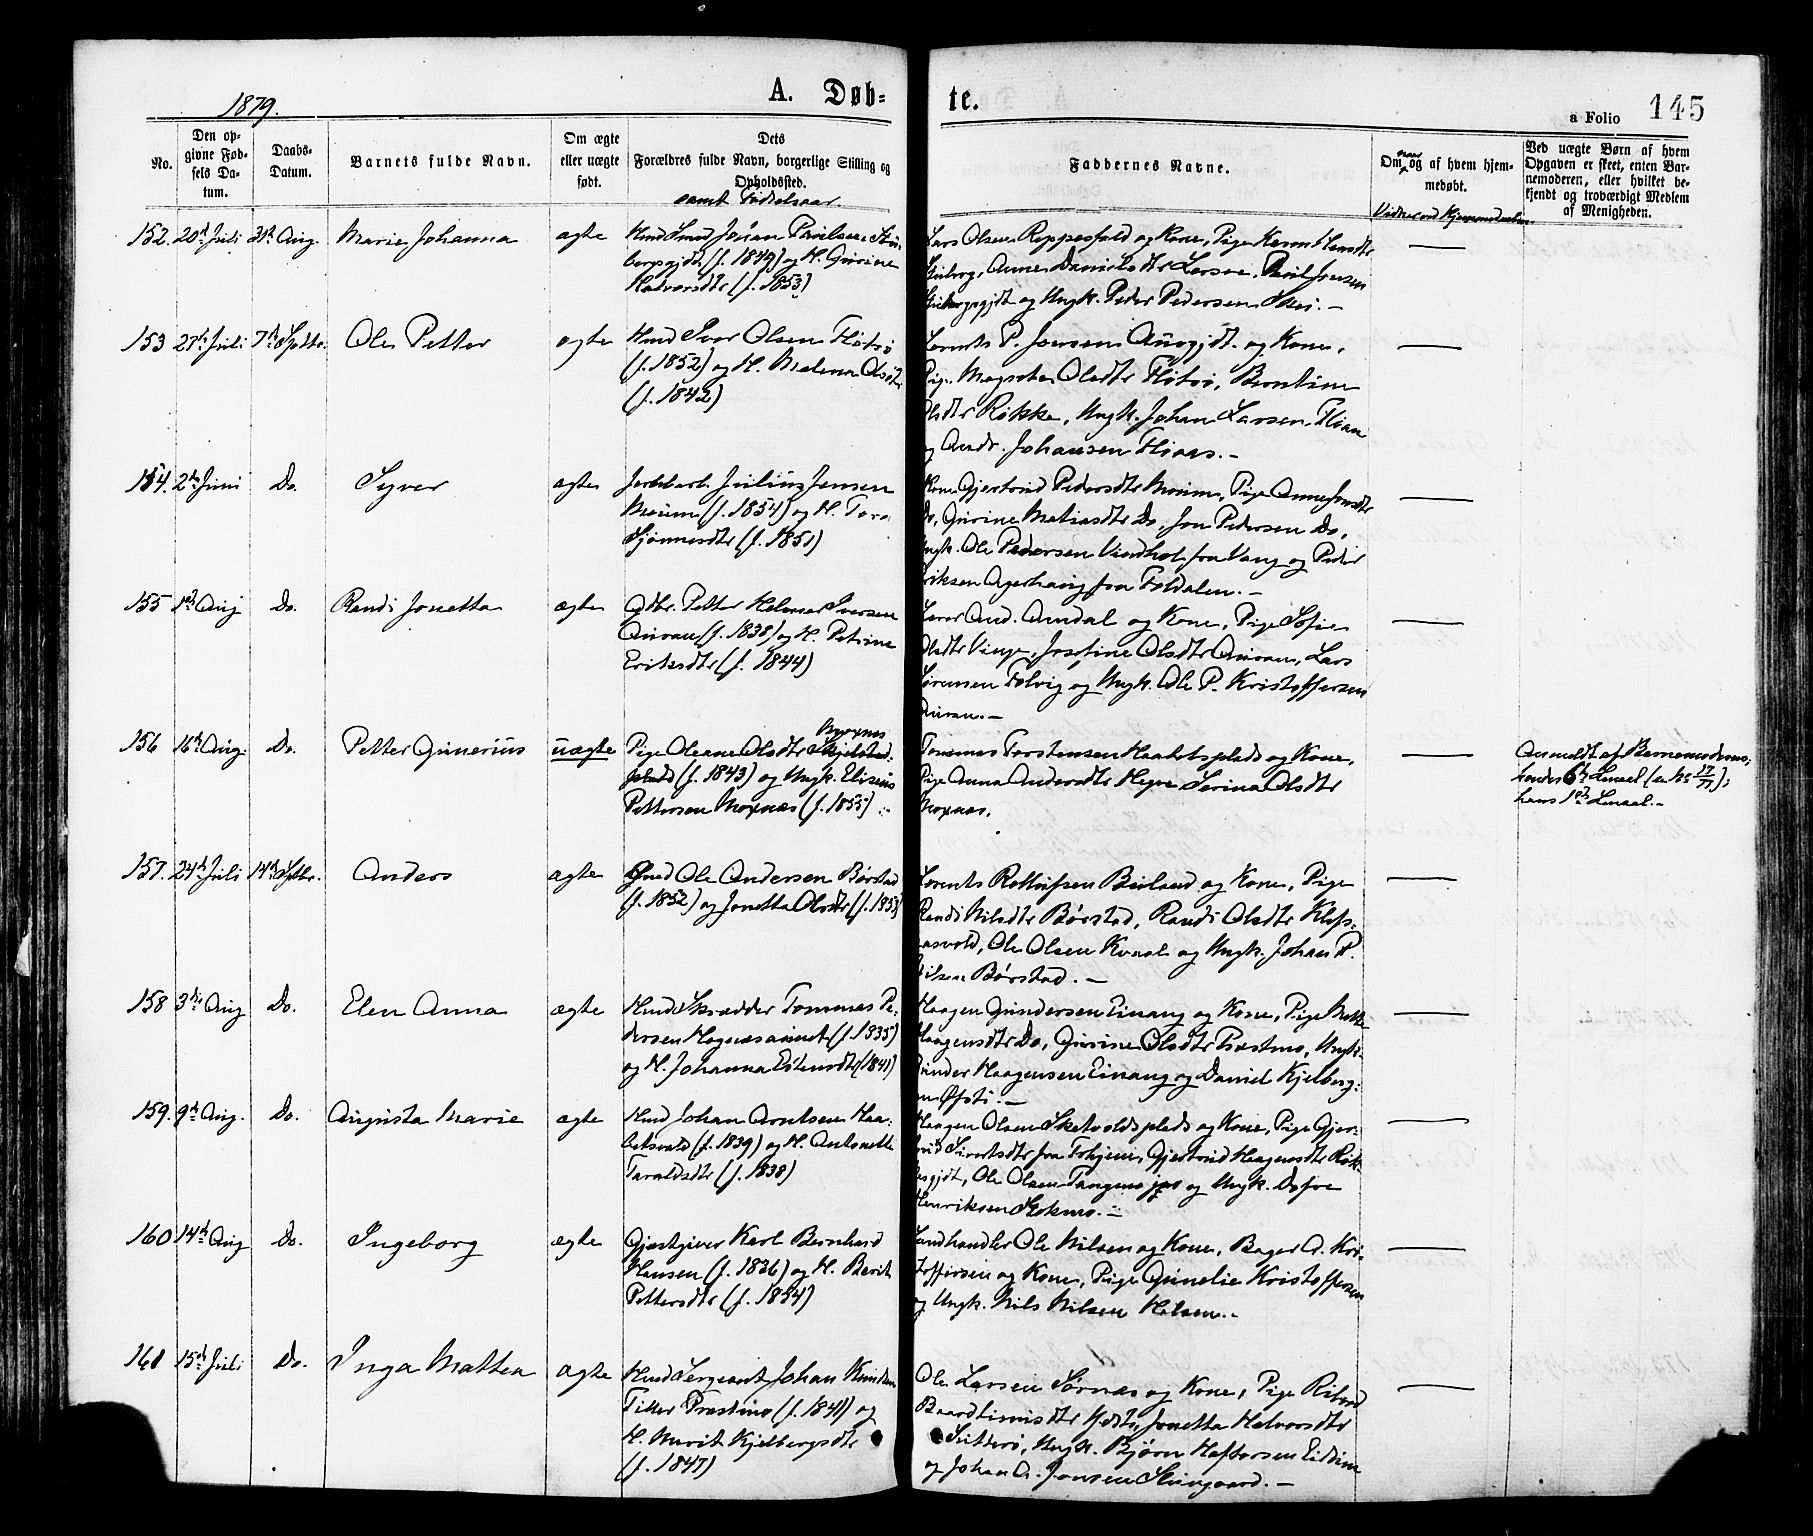 1879.
A. Døb=
te.
a Folio 145
No.
Den op-
givne Fød-
sels Da-
tum.
Daabs-
Datum.
Barnets fulde Navn.
Om ægte
eller uægte
født.
Dets
Forældres fulde Navn, borgerlige Stilling og
Opholdssted.
samt Fødselsaar.
Faddernes Navne.
Om naar og af hvem hjem-
medøbt.
Ved uægte Børn af hvem
Opgaven er skeet, enten Bar-
nemoderen, eller hvilket be-
kjendt og troværdigt Medlem
af Menigheden.
152. 20de Juli 31te Aug. Marie Johanna ægte Husmd Smed Johan Paulsen
(f. 1849) og H. Gurine
Halvorsdtr (f. 1853)
Lars Olsen Reppesfald og Kone, Pige
Anne Danielsdtr Lersve, Paul Jonsen
og Ungk. Peder Pedersen Skei. —
153 27de Juli 7de Septbr. Ole Petter ægte Husmd Ivar Olsen Flotsø
(f. 1852) og H. Malena Olsdtr
(f. 1842)
Lorents P. Joensen og Kone,
Pige Olsdtr Flotsø, Berntine
Olsdtr Røkke, Ungk. Johan Larsen Fliaas
og Andr. Johansen Fliaas. —
154. 2den Juni Do. Syver ægte Jordarb. Julius Jensen
Moum (f. 1854) og H. Tora
(f. 1851)
Kone Gjertrud Pedersdtr Moum, Pige Anne Jonsdtr
Do, Gurine Matiasdtr Do, Jon Pedersen Do,
Ungk. Ole Pedersen Vindhol fra Vang og Peder
Eriksen Agerhaug fra Foldalen. —
155 1ste Aug Do. Randi Jonetta ægte Gdbr. Petter Helmer Iversen
Auran (f. 1838) og H. Petrine
Eriksdtr (f. 1844)
Lærer And. Aundal og Kone, Pige Sofie
Olsdtr Vinge, Josefine Olsdtr Auran, Lars
Sørensen Folvig og Ungk. Ole P. Kristoffersen
Auran. —
156 16de Aug. Do. Petter Gunerius uægte Pige Oleane Olsdtr
Moxnes
(f. 1843) og Ungk. Eliseus
Pettersen Moxnæs (f. 1855)
Tomas Torstensen Haabetsplads og Kone,
Pige Anna Andersdtr Hegre Serina Olsdtr
Moxnæs.
Anmeldt af Barnemoderen;
hendes 6te Leiermaal
hans 1ste
157. 24de Juli 14de Septbr. Anders ægte Gmd Ole Andersen Børstad
(f. 1852) og Jonetta Olsdtr (f. 1853)
Lorents Rollufsen Beiland og Kone, Pige
Randi Nilsdtr Børstad, Randi Olsdtr Klefs-
aasvold, Ole Olsen Kvaal og Ungk. Johan P.
Nilsen Børstad. —
158 3die Aug Do. Elen Anna ægte Husmd Skrædder Tommas Pe-
dersen (f. 1835)
og H. Johanna Estensdtr (1841)
Haagen Gundersen Einang og Kone, Pige
Haagensdtr Do, Gurine Olsdtr Præstmo, Ungk.
Gunder Haagensen Einang og Daniel Kjelberg-
sen Øfsti. —
159. 9de Aug. Do. Augusta Marie ægte Husmd Johan Arntsen Haa-
(f. 1839) og H. Antonette
Taraldsdtr (f. 1838)
Haagen Olsen Sketvoldsplads og Kone, Pige Gjer-
trud Sivertsdtr fra Gjertrud Haagensdtr Røk-
kesgjdt, Ole Olsen og Ungk.
Henriksen Stokmo. —
160 14de Aug Do. Ingeborg ægte Gjæstgiver Karl Bernhard
Hansen (f. 1836) og H. Berit
Pettersdtr (f. 1854)
Landhandler Ole Nilsen og Kone, Bager A. Kri-
stoffersen og Kone, Pige Gunelie Kristoffersen
og Ungk. Nils Nilsen —
161 15de Juli Do. Inga Mattea ægte Husmd Sergeant Johan Knudsen
Tiller Præstmo (f. 1841) og
H. Marit Kjelbergsdtr
(f. 1847)
Ole Larsen Sørnæs og Kone, Pige
Jonetta Halvorsdtr
Sutterø, Ungk. Bjørn Haftorsen
og Johan A. Jonsen —